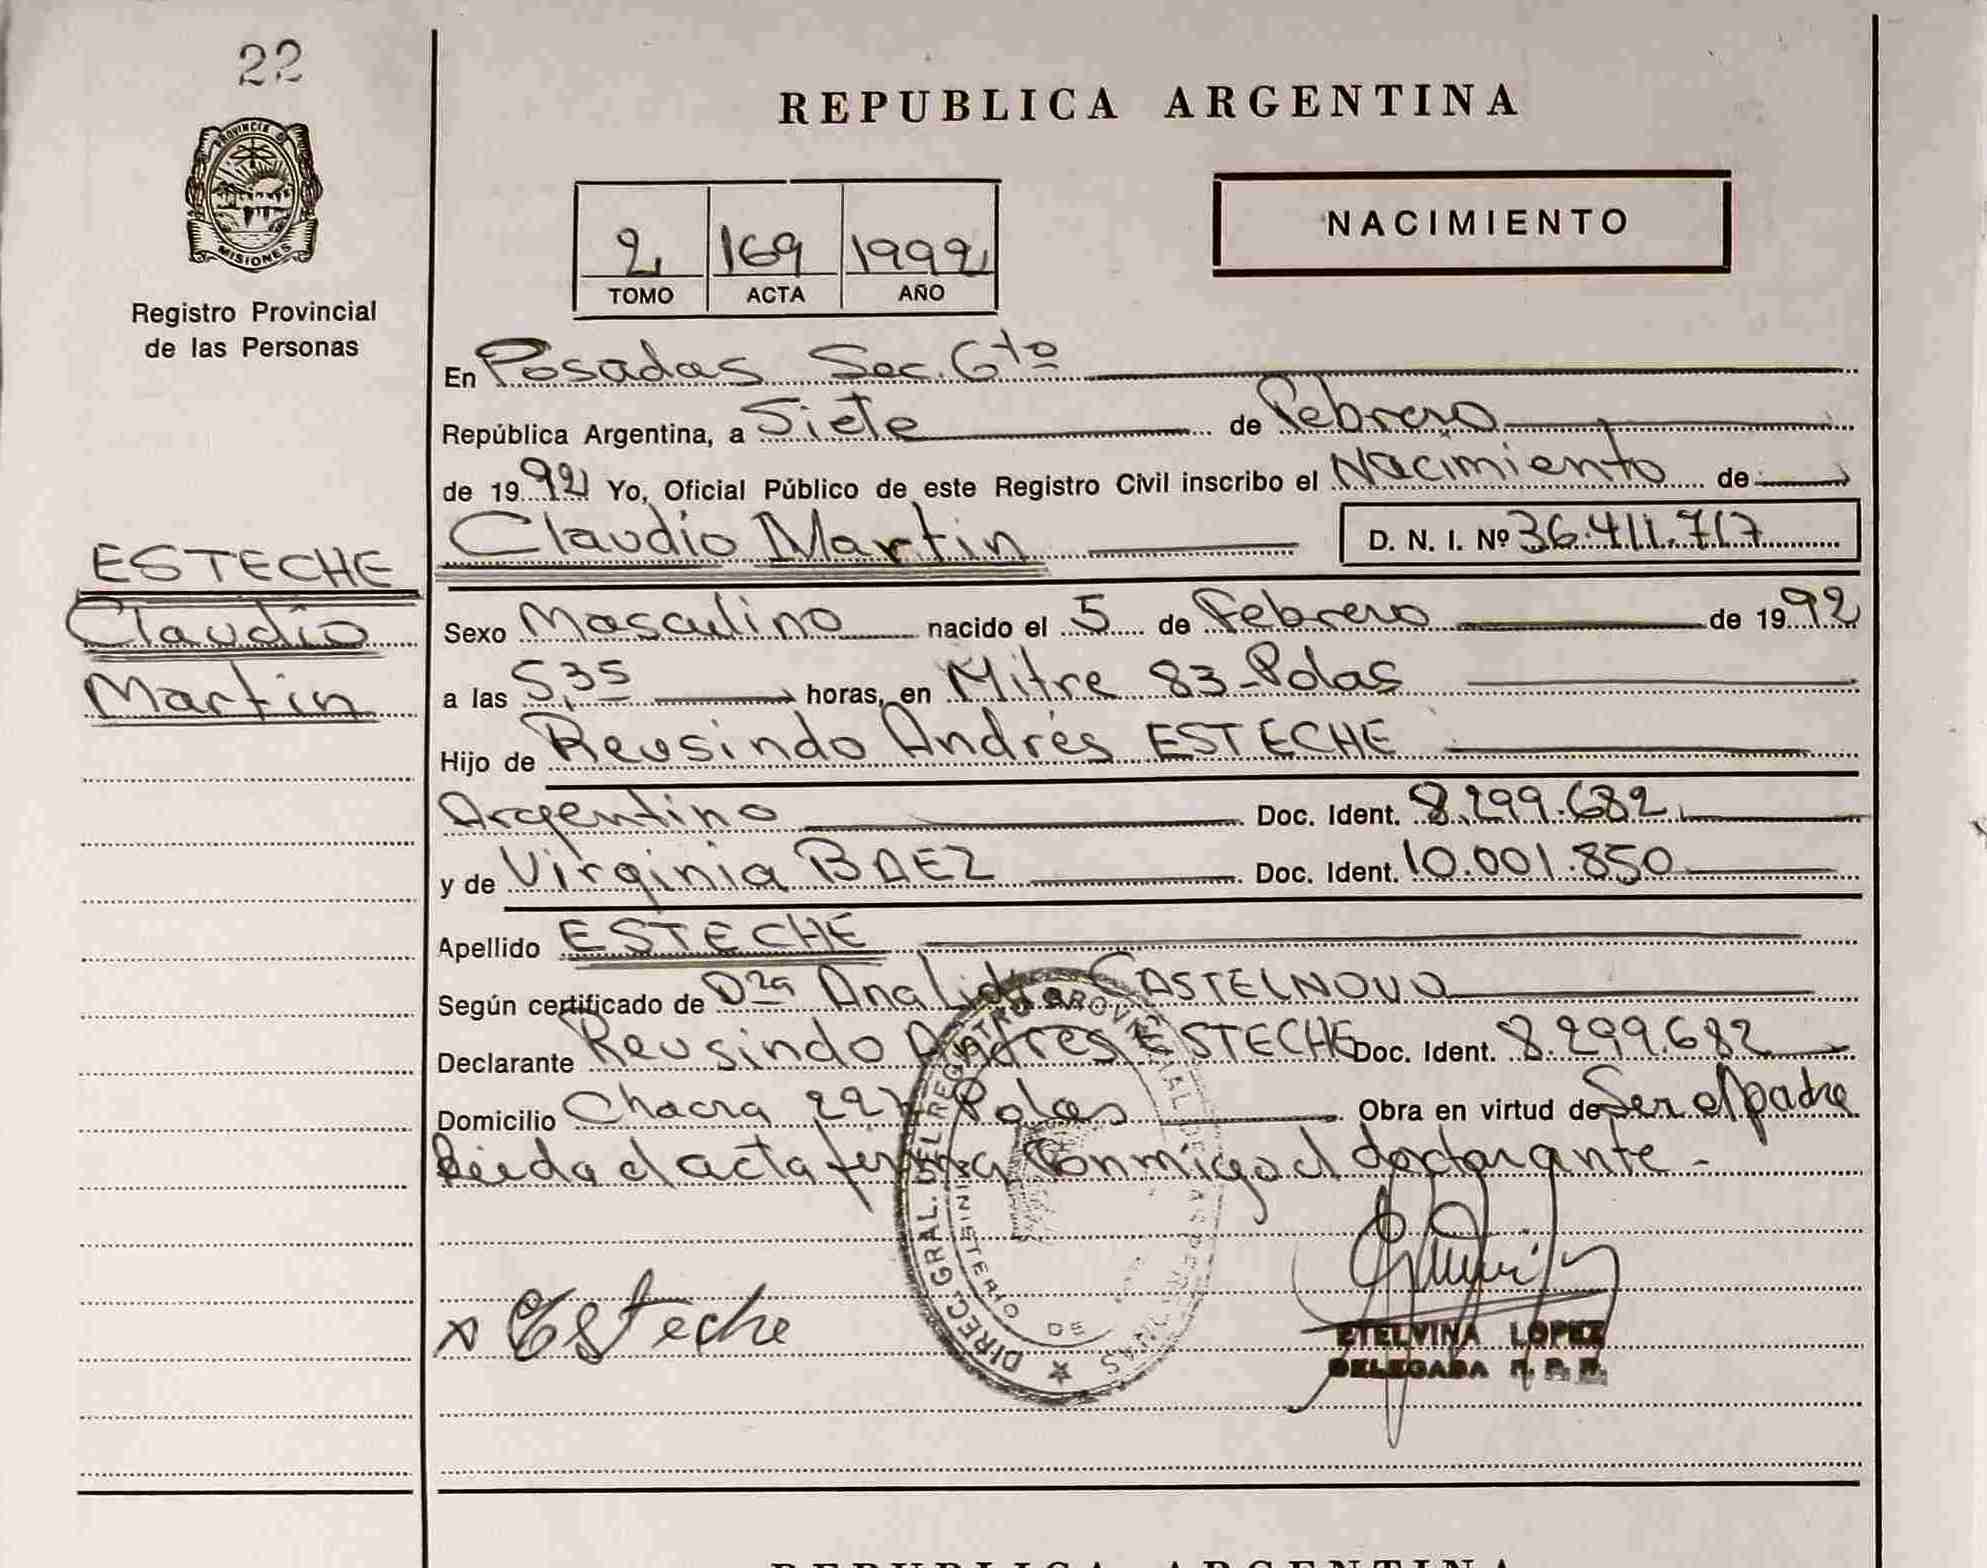 22
PROVINCIA DE
MISIONES
Registro Provincial
de las Personas
ESTECHE
Claudio
Martin
REPUBLICA ARGENTINA
2 169 1992
TOMO ACTA AÑO
NACIMIENTO
En Posadas Sec. 6to
República Argentina, a Siete de Febrero
de 1992 Yo, Oficial Público de este Registro Civil inscribo el Nacimiento de
Claudio Martin D. N. I. Nº 36.411.717
Sexo Masculino nacido el 5 de Febrero de 1992
a las 5,35 horas, en Mitre 83-Pdas
Hijo de Reusindo Andrés ESTECHE
Argentino Doc. Ident. 8.299.682
y de Virginia BAEZ Doc. Ident. 10.001.850
Apellido ESTECHE
Según certificado de Dra Analida CASTELNOVO
Declarante Reusindo Andres ESTECHE Doc. Ident. 8.299.682
Domicilio Chacra 227 Pdas Obra en virtud de Ser el padre
Leida el acta firma conmigo el declarante -
x Esteche
DIREC. GRAL. DEL REGISTRO PROVINCIAL DE LAS PERSONAS
MINISTERIO DE
ETELVINA LOPEZ
DELEGADA R. P. P.
REPUBLICA ARGENTINA